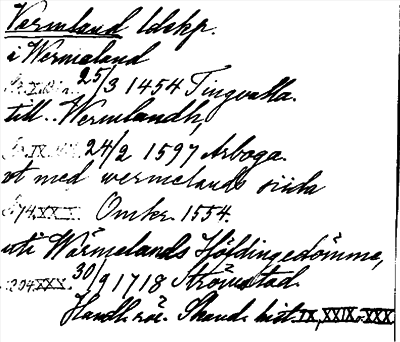 Värmland ldskp.
i Wermeland
25/3 1454 Tingvalla.
till Wermlandh,
24/2 1597 Arboga.
vt med wermelands siida
Omkr. 1554.
uti Wärmelands Höfdingedömme,
30/9 1718 Strömstad.
Handl. rör. Skand. hist. IX, XXIX-XXX